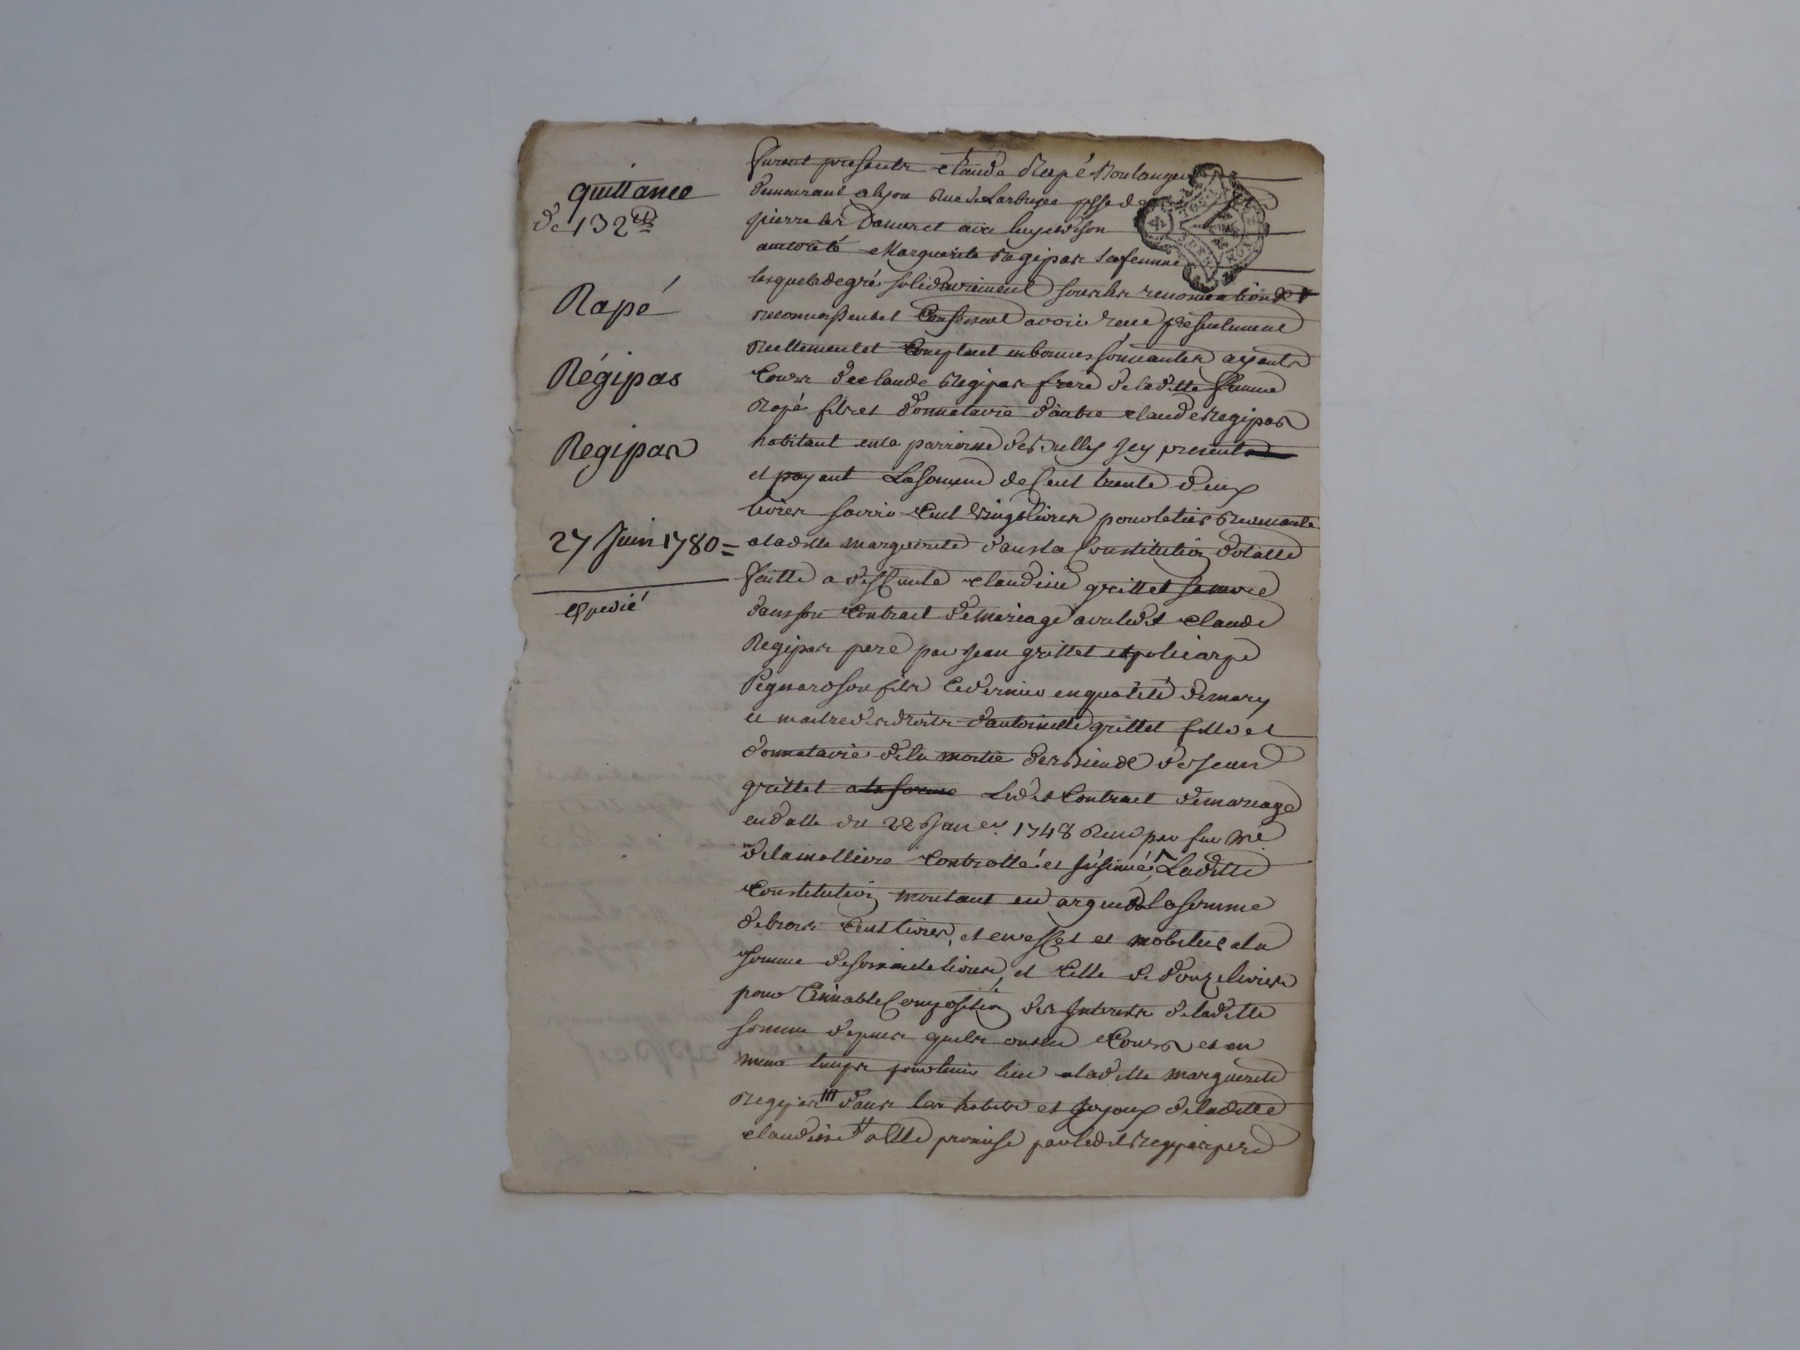 quittance
de 132 lt
Rapé
Régipas
Regipas
27 Juin 1780 =
Expedié
furent presents claude Rapé Boulanger
demeurant a lyon Rue de Larbrese psse de
pierre les et avec luy et de son
autorité Marguerite Regipas sa femme
lesquels de gré solidairement sous les renonciations
reconnoissent et Confessent avoir reçu presentement
Reellement et Comptant en bonnes sonnantes ayants
Cours de claude Regipas frere de laditte femme
Rapé fils et donnataire d'autre claude Regipas
habitant en la parroisse de Sully Jcy present
et payant La somme de Cent trente deux
livres savoir Cent vingt livres pour le tiers Revenante
a laditte marguerite dans la Constitution dotalle
faitte a deffunte claudine grittet sa mere
dans son Contract de mariage avec ledit claude
Regipas pere par Jean grittet et policarpe
son fils Ce dernier en qualité de mary
et maitre des droits d'antoinette grittet fille et
donnataire de la moitié des Biens de Jean
grittet a la forme Ledit Contract de mariage
en datte du 22 Janer. 1748 Reçu par feu Me
delamolliere Controllé et insinué Laditte
Constitution montant en argent a la somme
de trois Cent livres, et en effets et mobiliers a la
somme de soixante livres, et Celle de douze livres
pour aimable Composition des Interets de laditte
somme depuis qu'ils ont eu Cours et en
meme temps pour tenir lieu a laditte marguerite
Regipas dans les habits et Joyaux de laditte
claudine a elle promise par ledit Regipas pere